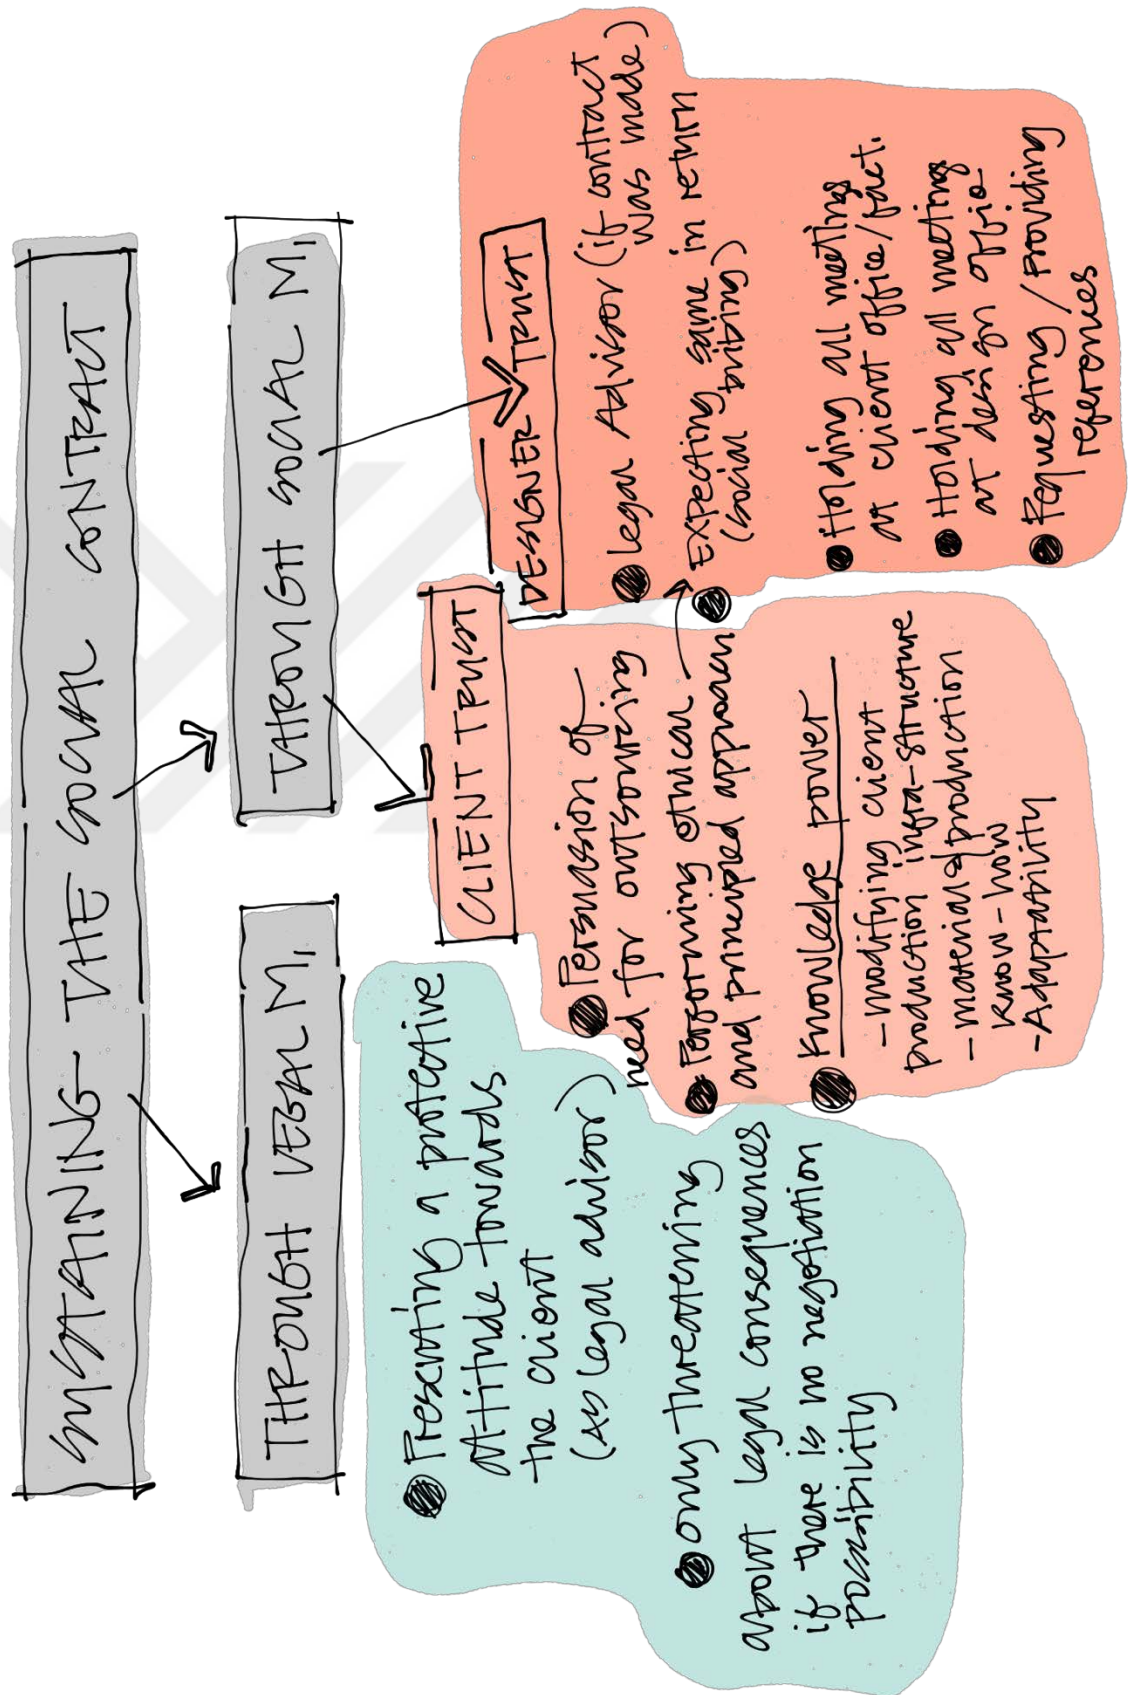 SUSTAINING THE SOCIAL CONTRACT
THROUGH LEGAL M,
THROUGH SOCIAL M,
● Presenting a protective
attitude towards
the client
(as legal advisor)
● only threatening
about legal consequences
if there is no negotiation
possibility
CLIENT TRUST
● Persuasion of
need for outsourcing
● Performing ethical
and principled approach
● Knowledge power
- modifying client
production infra-structure
- material & production
know-how
- Adaptability
DESIGNER TRUST
● legal Advisor (if contract
was made)
● Expecting same in return
(social priting)
● Holding all meetings
at client office/fact.
● Holding all meetings
at design office
● Requesting/Providing
references